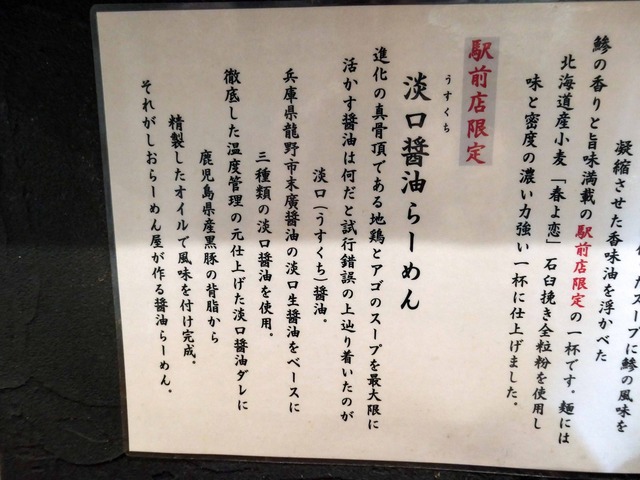 たスープに鯵の風味を
凝縮させた香味油を浮かべた
鯵の香りと旨味満載の駅前店限定の一杯です。麺には
北海道産小麦「春よ恋」石臼挽き全粒粉を使用し
味と密度の濃い力強い一杯に仕上げました。
駅前店限定
うすくち
淡口醤油らーめん
進化の真骨頂である地鶏とアゴのスープを最大限に
活かす醤油は何だと試行錯誤の上辿り着いたのが
淡口(うすくち)醤油。
兵庫県龍野市末廣醤油の淡口生醤油をベースに
三種類の淡口醤油を使用。
徹底した温度管理の元仕上げた淡口醤油ダレに
鹿児島県産黒豚の背脂から
精製したオイルで風味を付け完成。
それがしおらーめん屋が作る醤油らーめん。